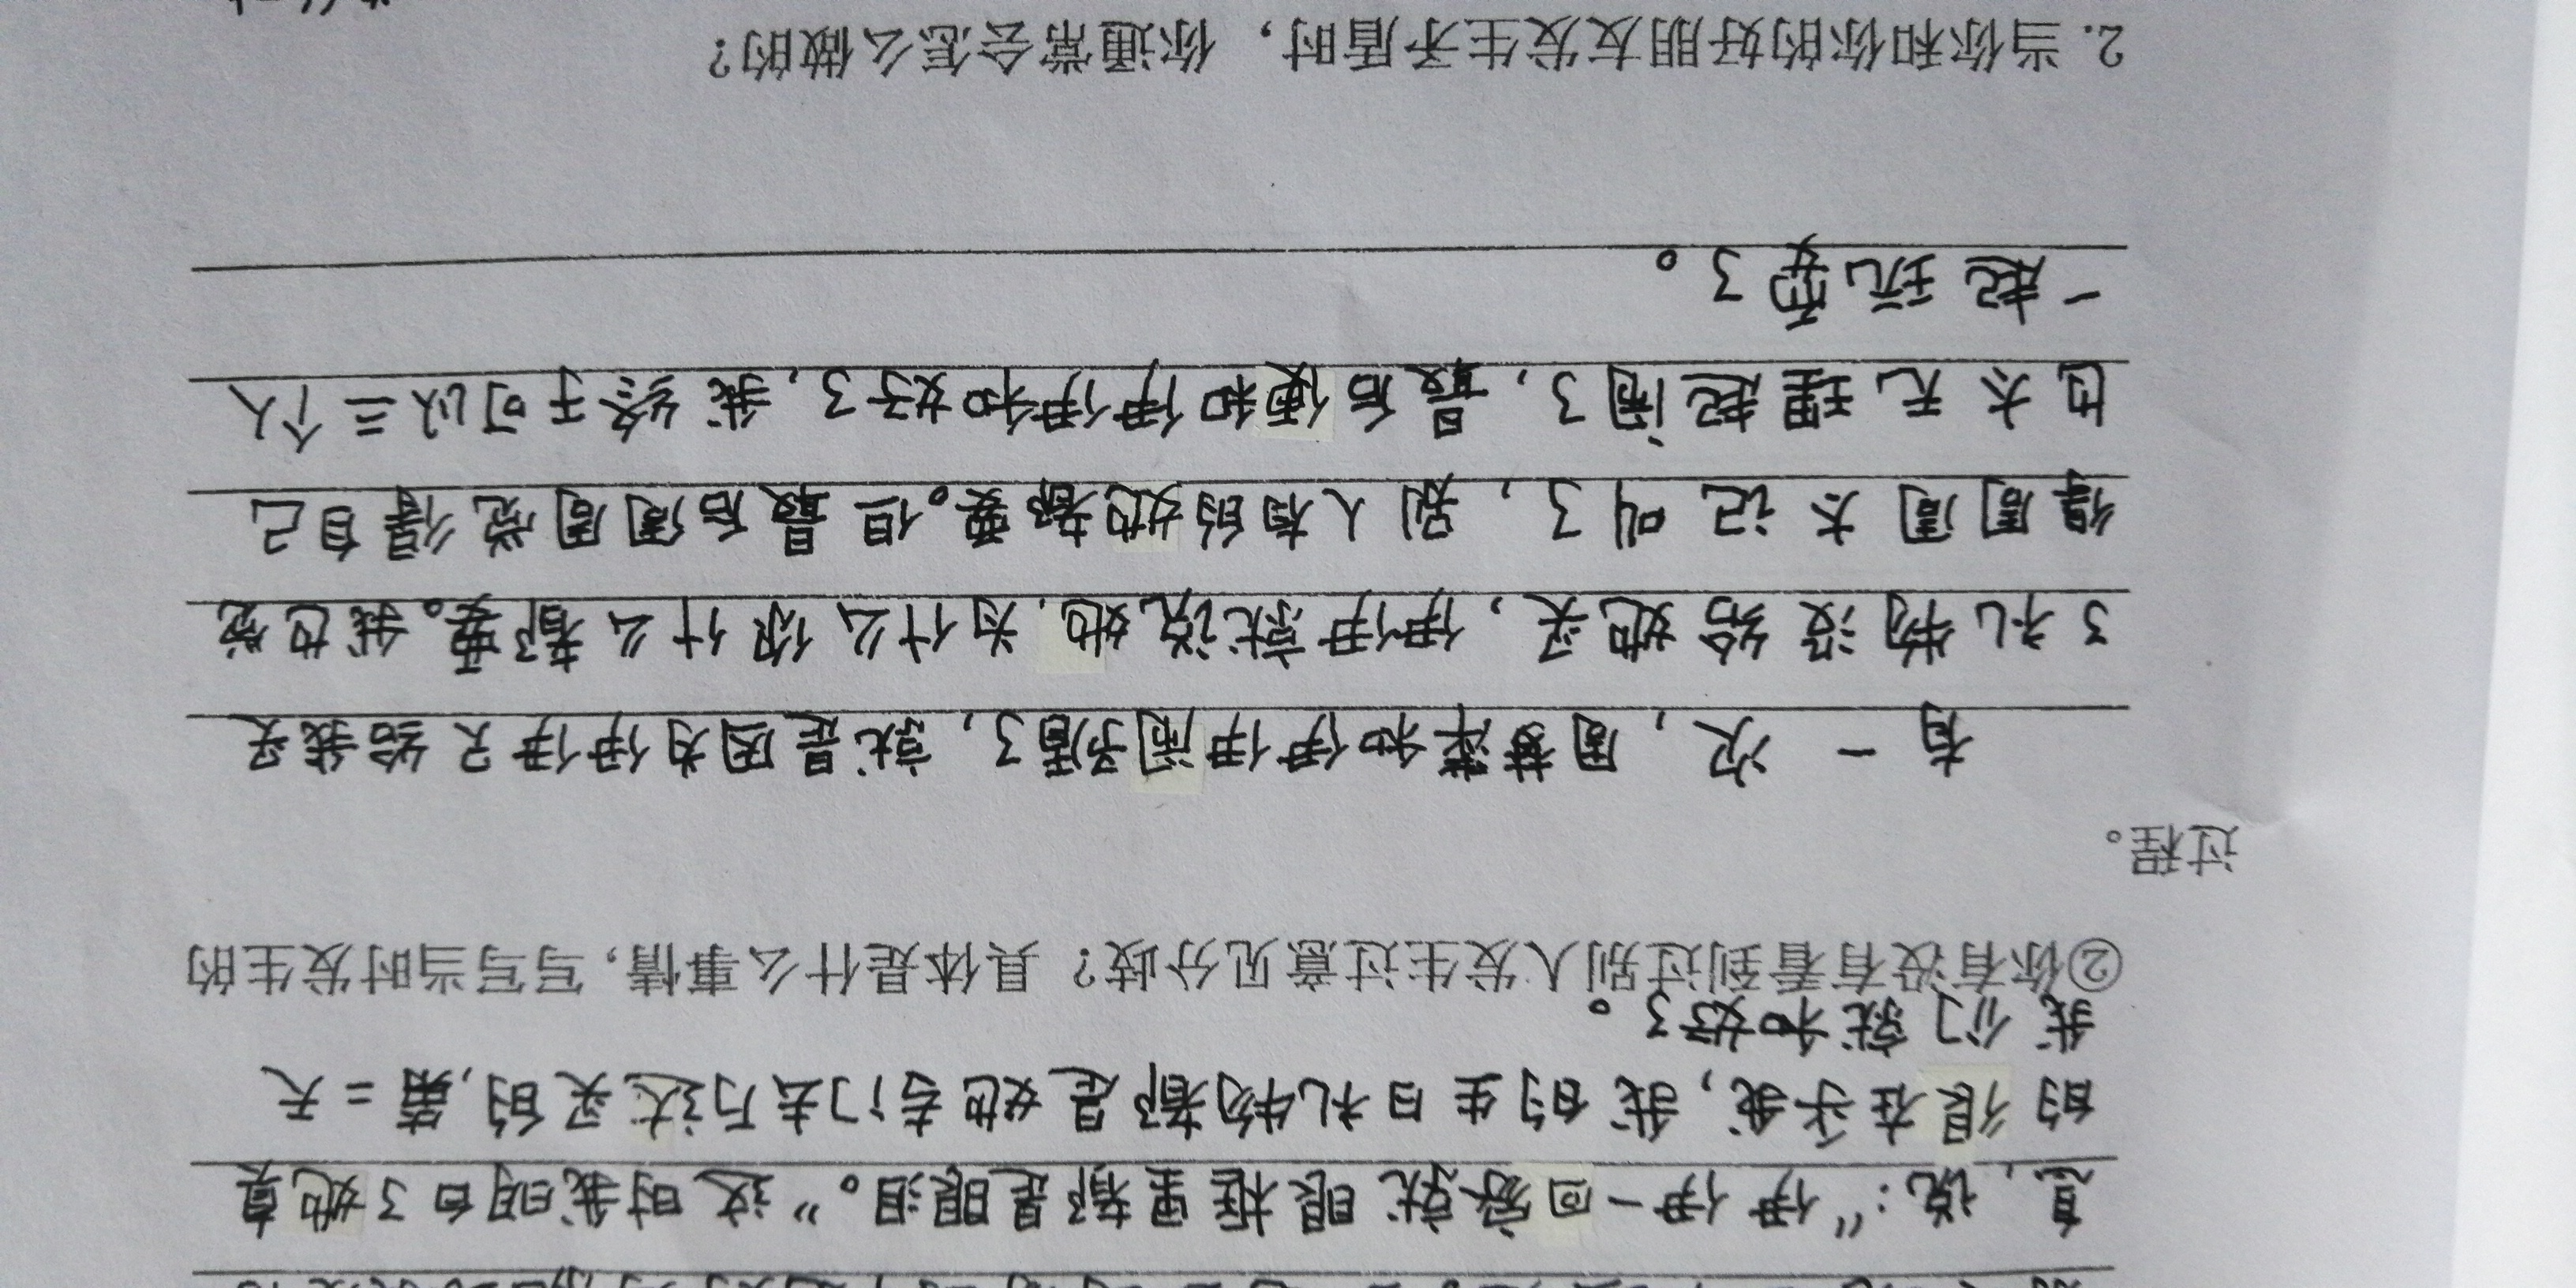 息,说:“伊伊一回家就眼框里都是眼泪。”这时我明白了她真
的很在乎我,我的生日礼物都是她专门去万达买的,第二天
我们就和好了。
②你有没有看到过别人发生过意见分歧?具体是什么事情,写写当时发生的
过程。
有一次,周梦泽和伊伊闹矛盾了,就是因为伊伊只给我买
了礼物没给她买,伊伊就说她,为什么你什么都要。我也觉
得周周太记叫了,别人有的她都要。但最后周周觉得自己
也太无理起闹了,最后便和伊伊和好了,我终于可以三个人
一起玩耍了。
2.当你和你的好朋友发生矛盾时,你通常会怎么做的?